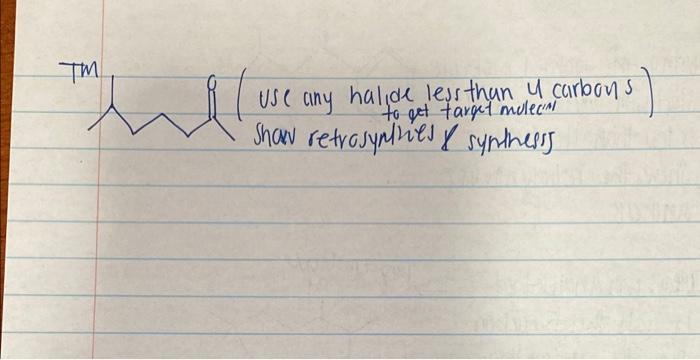 TM
O
(use any halide less than 4 carbons)
to get target molecul
show retrosynthes & synthesis